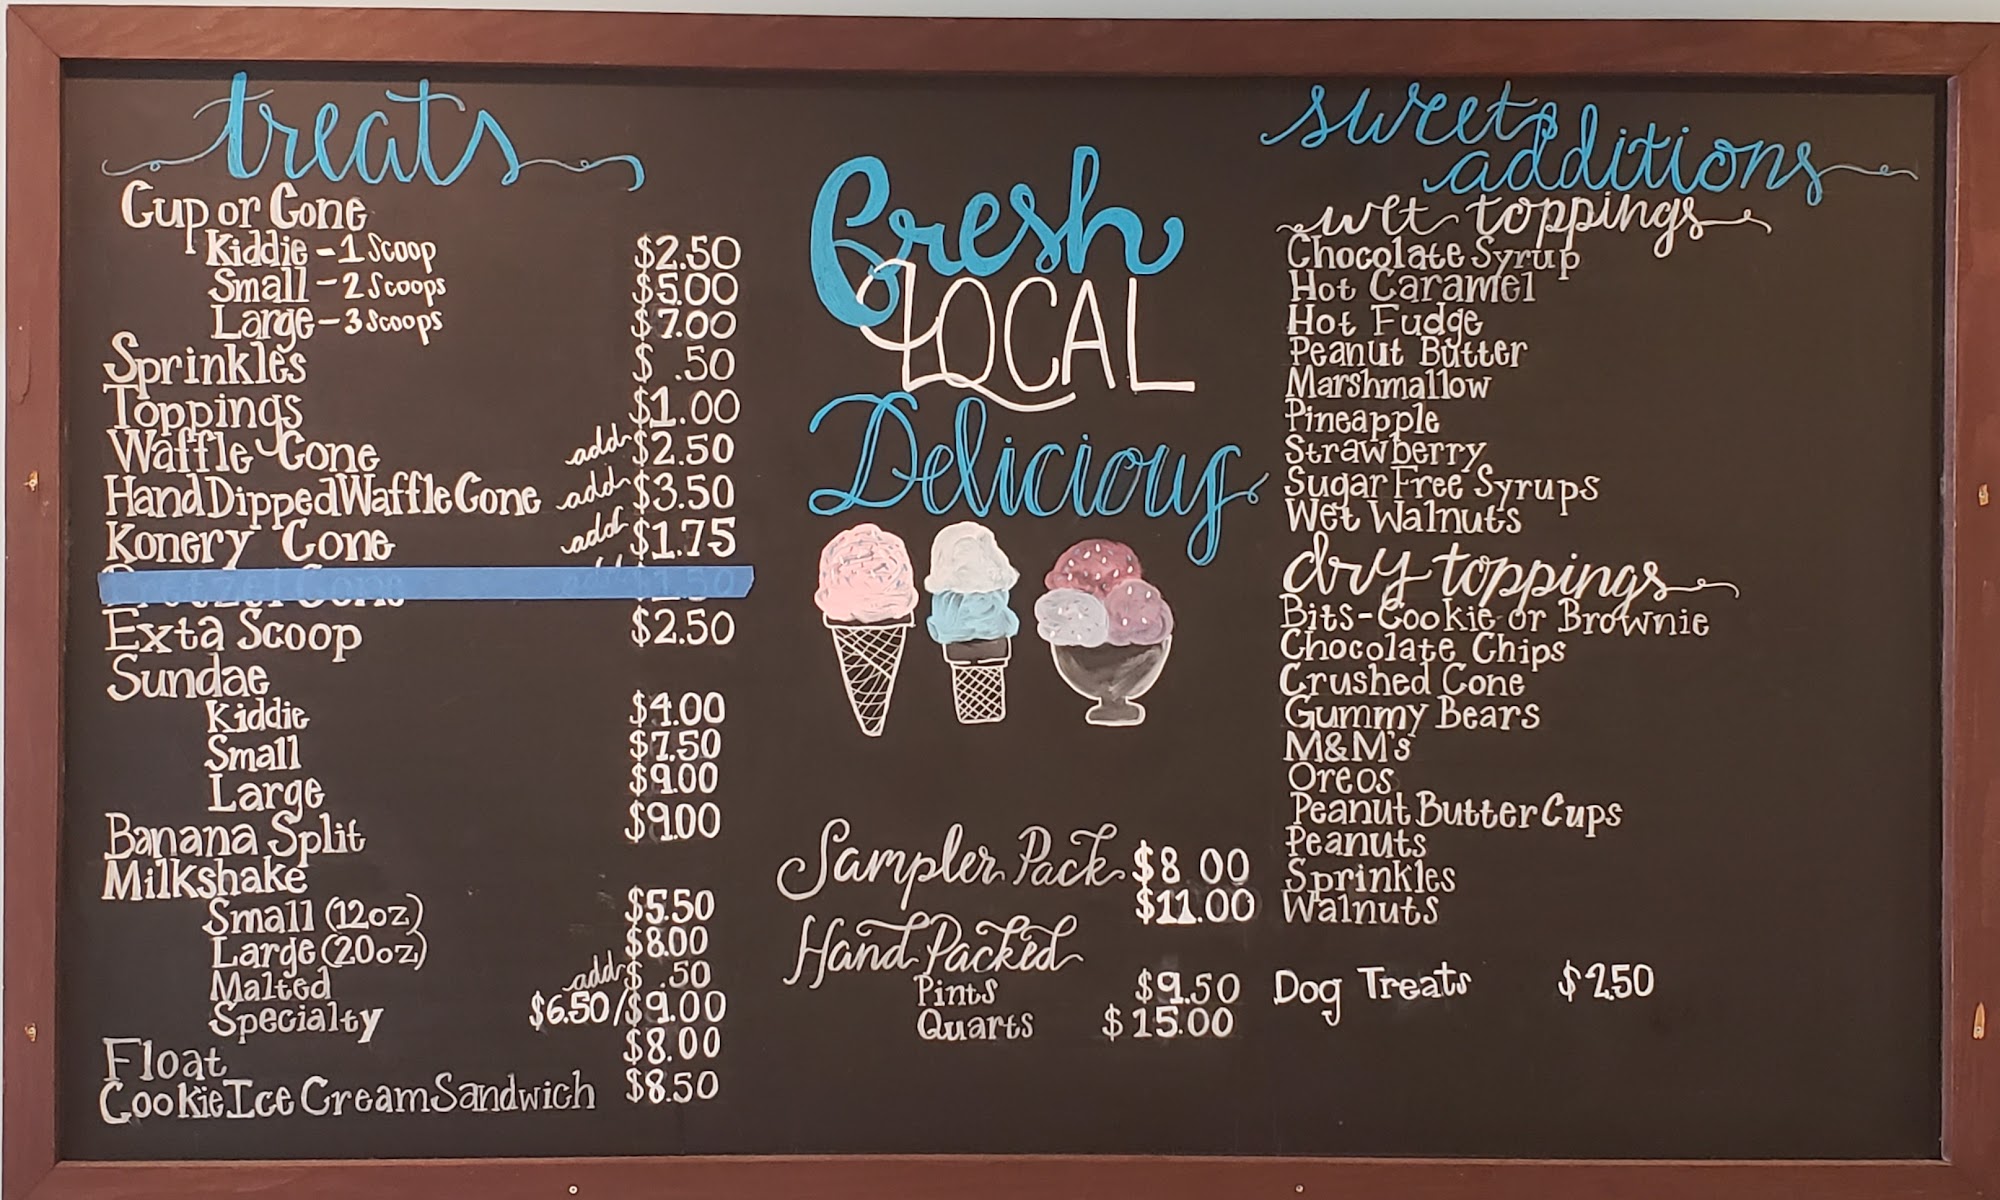 treats
Cup or Cone
Kiddie - 1 Scoop $2.50
Small - 2 Scoops $5.00
Large - 3 Scoops $7.00
Sprinkles $ .50
Toppings $1.00
Waffle Cone add $2.50
Hand Dipped Waffle Cone add $3.50
Konery Cone add $1.75
Exta Scoop $2.50
Sundae
Kiddie $4.00
Small $7.50
Large $9.00
Banana Split $9.00
Milkshake
Small (12oz) $5.50
Large (20oz) $8.00
Malted add $ .50
Specialty $6.50/$9.00
Float $8.00
Cookie Ice Cream Sandwich $8.50
Fresh
LOCAL
Delicious
Sampler Pack $8.00
$11.00
Hand Packed
Pints $9.50
Quarts $15.00
sweet
additions
wet toppings
Chocolate Syrup
Hot Caramel
Hot Fudge
Peanut Butter
Marshmallow
Pineapple
Strawberry
Sugar Free Syrups
Wet Walnuts
dry toppings
Bits-Cookie or Brownie
Chocolate Chips
Crushed Cone
Gummy Bears
M&M's
Oreos
Peanut Butter Cups
Peanuts
Sprinkles
Walnuts
Dog Treats $2.50